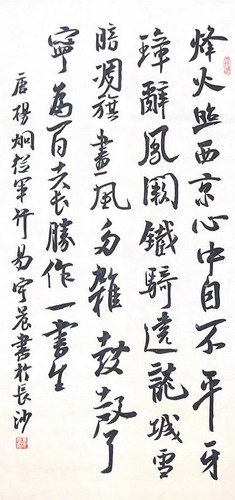 烽火照西京心中自不平牙
璋辭鳳闕鐵騎遶龍城雪
暗凋旗畫風多雜鼓聲
寧為百夫長勝作一書生
唐楊炯從軍行易宇晨書於長沙